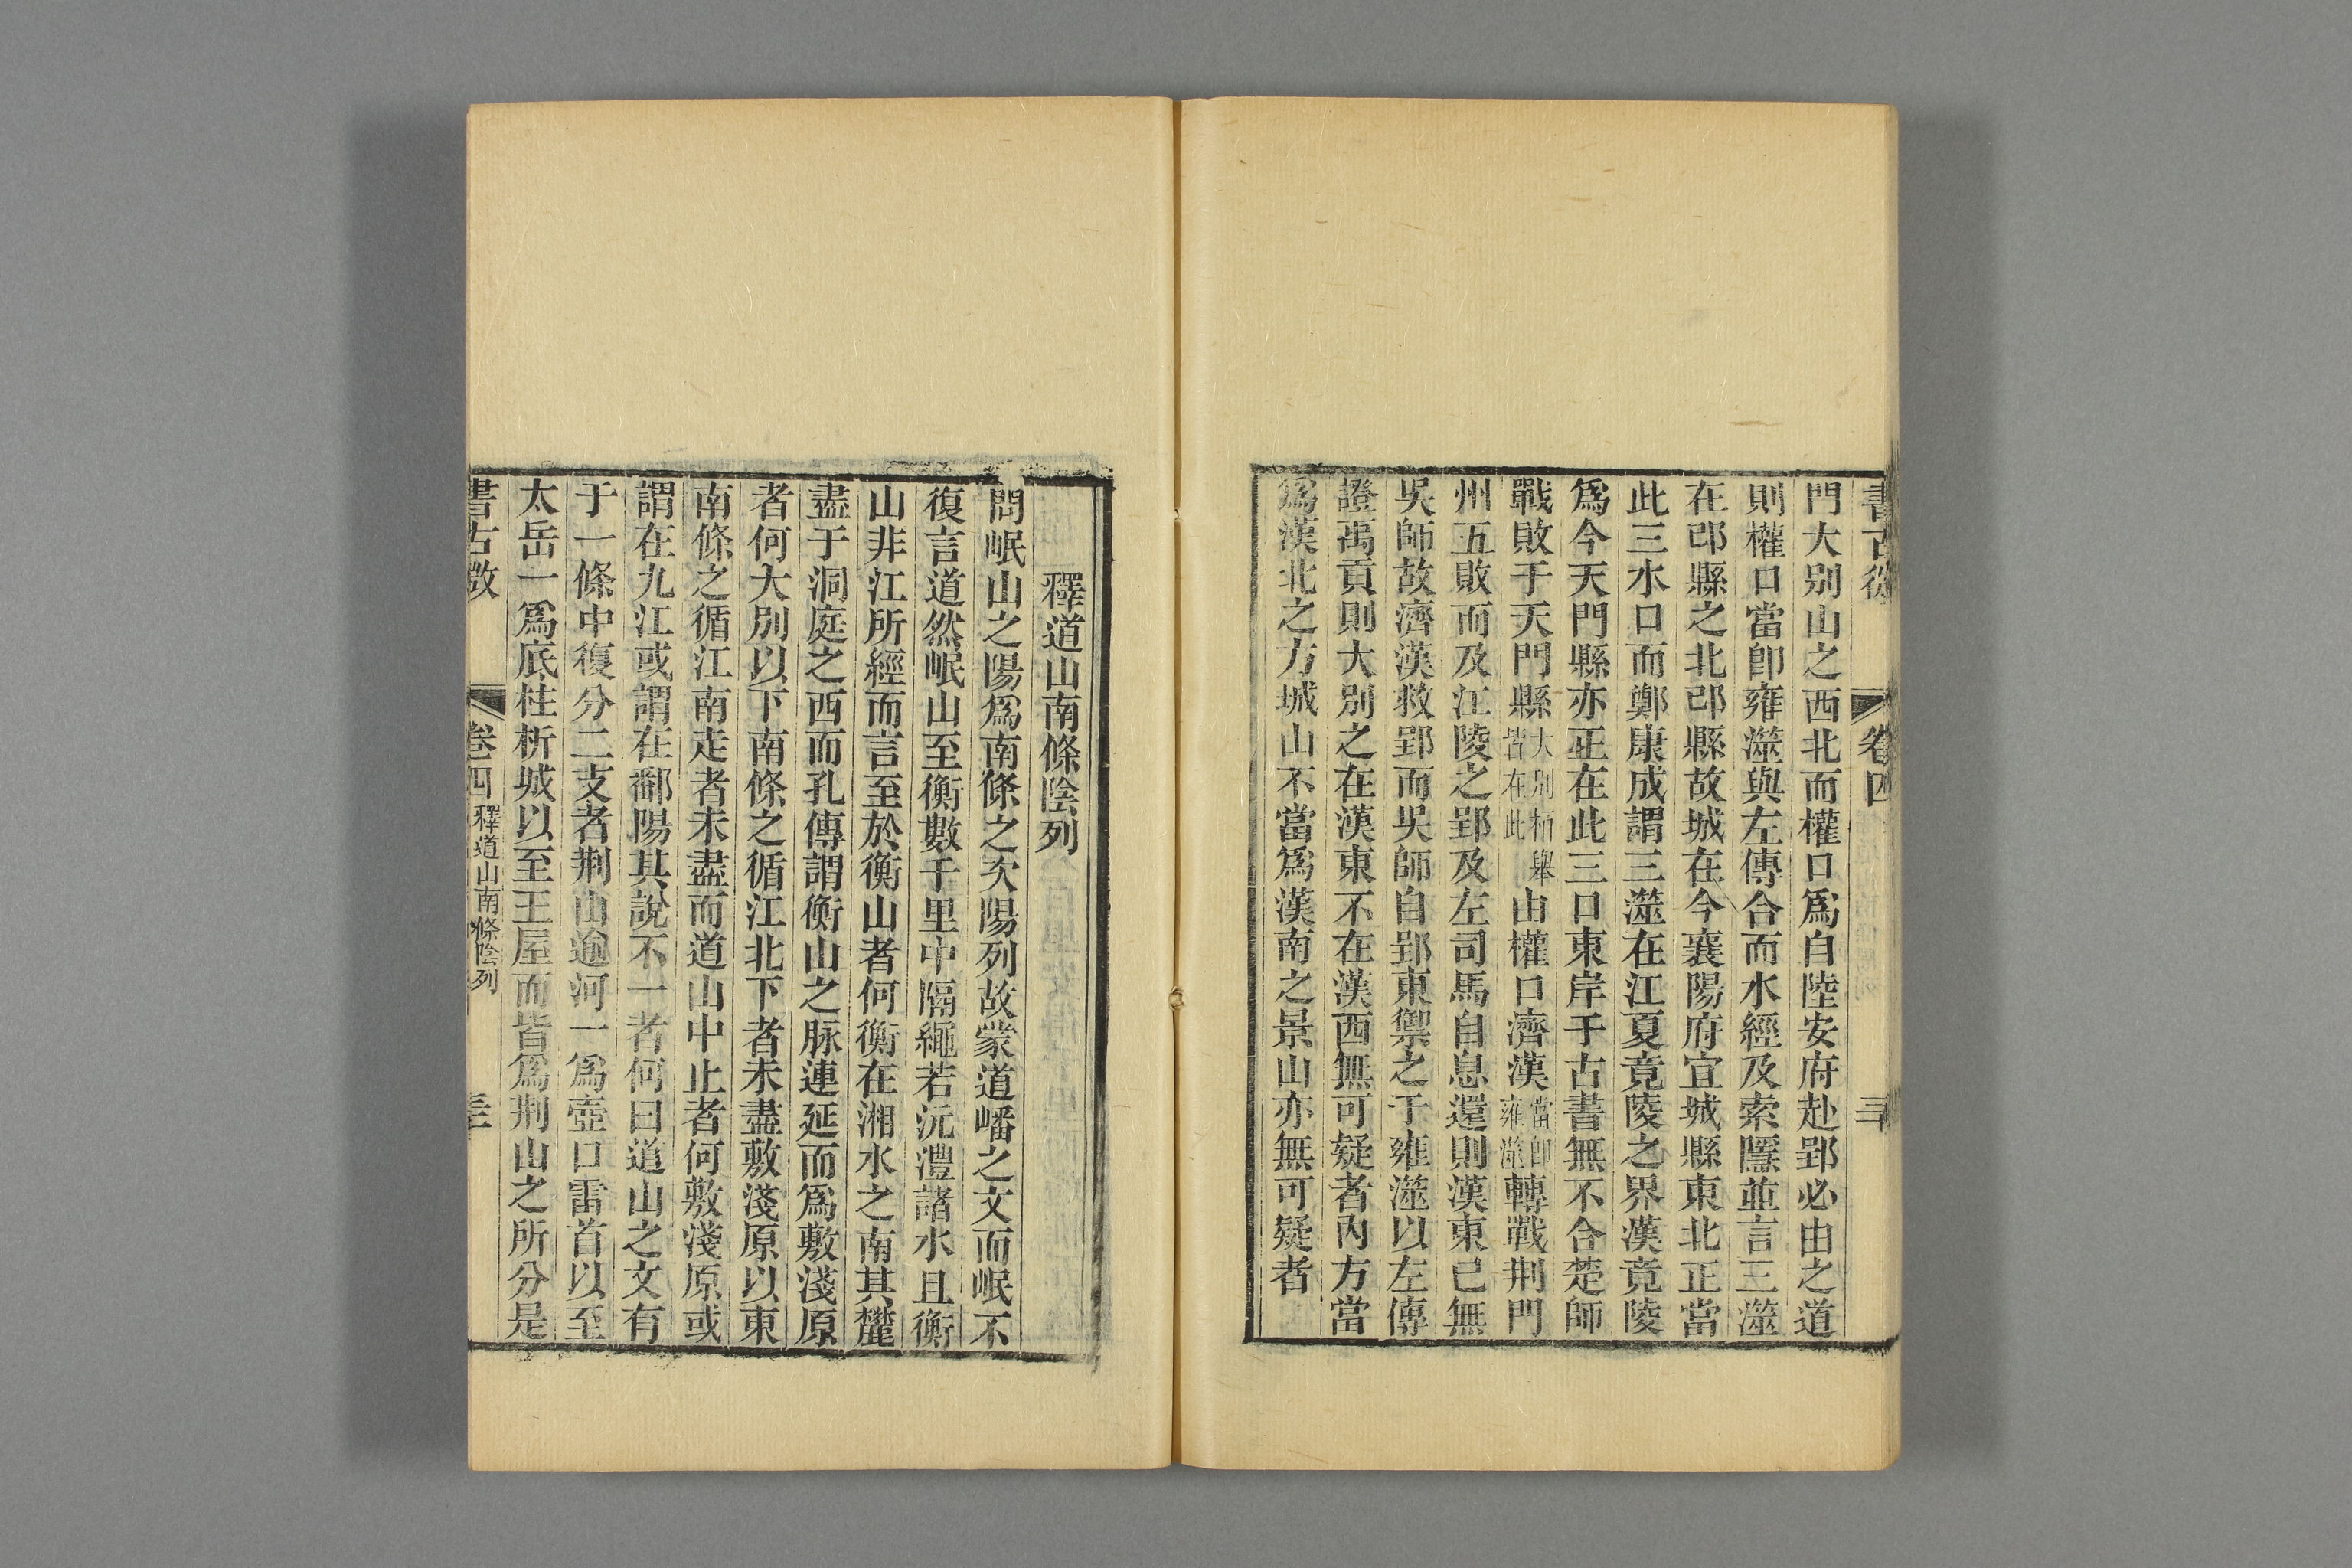 書古微 卷四 三十
門大别山之西北而權口爲自陸安府赴郢必由之道
則權口當卽雍澨與左傳合而水經及索隱並言三澨
在邔縣之北邔縣故城在今襄陽府宜城縣東北正當
此三水口而鄭康成謂三澨在江夏竟陵之界漢竟陵
爲今天門縣亦正在此三口東岸于古書無不合楚師
戰敗于天門縣大别栢舉皆在此由權口濟漢當卽雍澨轉戰荆門
州五敗而及江陵之郢及左司馬自息還則漢東已無
吳師故濟漢救郢而吳師自郢東禦之于雍澨以左傳
證禹貢則大别之在漢東不在漢西無可疑者內方當
爲漢北之方城山不當爲漢南之景山亦無可疑者
釋道山南條陰列
問岷山之陽爲南條之次陽列故蒙道嶓之文而岷不
復言道然岷山至衡數千里中隔繩若沅澧諸水且衡
山非江所經而言至於衡山者何衡在湘水之南其麓
盡于洞庭之西而孔傳謂衡山之脉連延而爲敷淺原
者何大别以下南條之循江北下者未盡敷淺原以東
南條之循江南走者未盡而道山中止者何敷淺原或
謂在九江或謂在鄱陽其說不一者何曰道山之文有
于一條中復分二支者荆山逾河一爲壺口雷首以至
太岳一爲底柱析城以至王屋而皆爲荆山之所分是
書古微 卷四 釋道山南條陰列